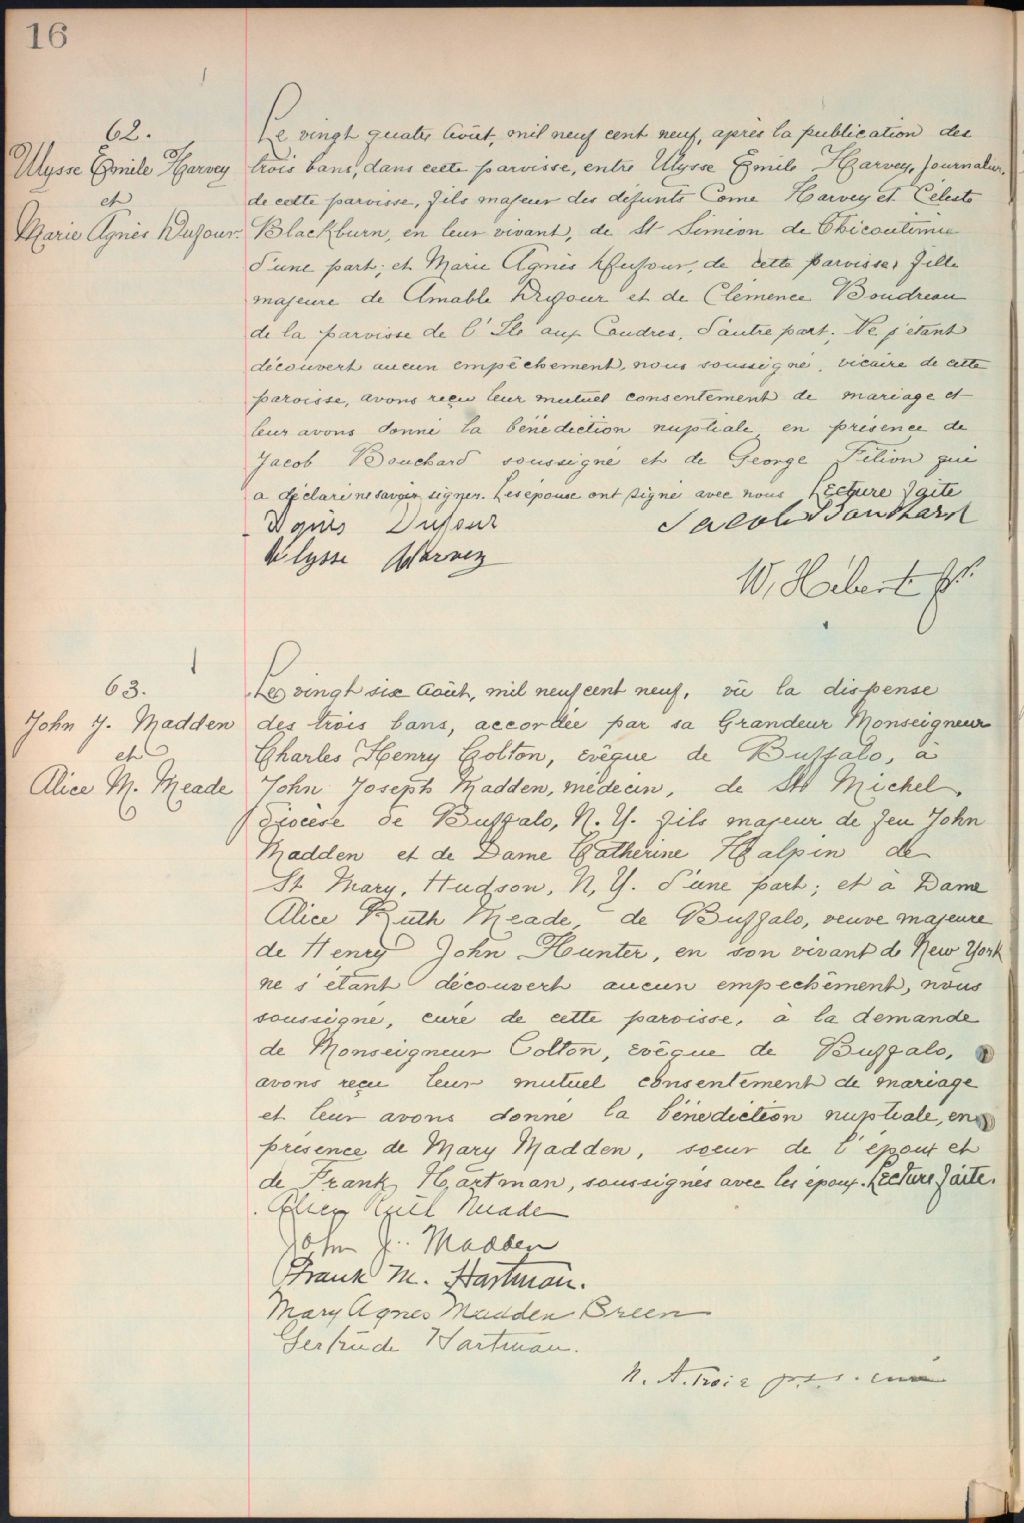 16
62.
Ulysse Emile Harvey
et
Marie Agnès Dufour.
Le vingt quatre Août, mil neuf cent neuf, après la publication des
trois bans, dans cette paroisse, entre Ulysse Emile Harvey, journalier,
de cette paroisse, fils majeur des défunts Come Harvey et Céleste
Blackburn, en leur vivant, de St Siméon de Chicoutimi
d'une part; et Marie Agnès Dufour, de cette paroisse, fille
majeure de Amable Dufour et de Clémence Boudreau
de la paroisse de l'Ile aux Coudres, d'autre part; Ne s'étant
découvert aucun empêchement, nous soussigné, vicaire de cette
paroisse, avons reçu leur mutuel consentement de mariage et
leur avons donné la bénédiction nuptiale en présence de
Jacob Bouchard soussigné et de George Filion qui
a déclaré ne savoir signer. Les épouse ont signé avec nous Lecture faite
Agnès Dufour
Jacob Bouchard
Ulysse Harvey
W. Hébert ptr.
63.
John J. Madden
et
Alice M. Meade
Le vingt six Août, mil neuf cent neuf, vû la dispense
des trois bans, accordée par sa Grandeur Monseigneur
Charles Henry Colton, evêque de Buffalo, à
John Joseph Madden, médecin, de St Michel,
diocèse de Buffalo, N. Y. fils majeur de feu John
Madden et de Dame Catherine Halpin de
St Mary, Hudson, N, Y. d'une part; et à Dame
Alice Ruth Meade, de Buffalo, veuve majeure
de Henry John Hunter, en son vivant de New York
ne s'étant découvert aucun empechêment, nous
soussigné, curé de cette paroisse, à la demande
de Monseigneur Colton, evêque de Buffalo,
avons reçu leur mutuel consentement de mariage
et leur avons donné la bénédiction nuptiale, en
présence de Mary Madden, soeur de l'époux et
de Frank Hartman, soussignés avec les époux. Lecture faite.
Alice Ruth Meade
John J. Madden
Frank M. Hartman.
Mary Agnes Madden Breen
Gertrude Hartman.
N. A. Troie p.s.s. curé